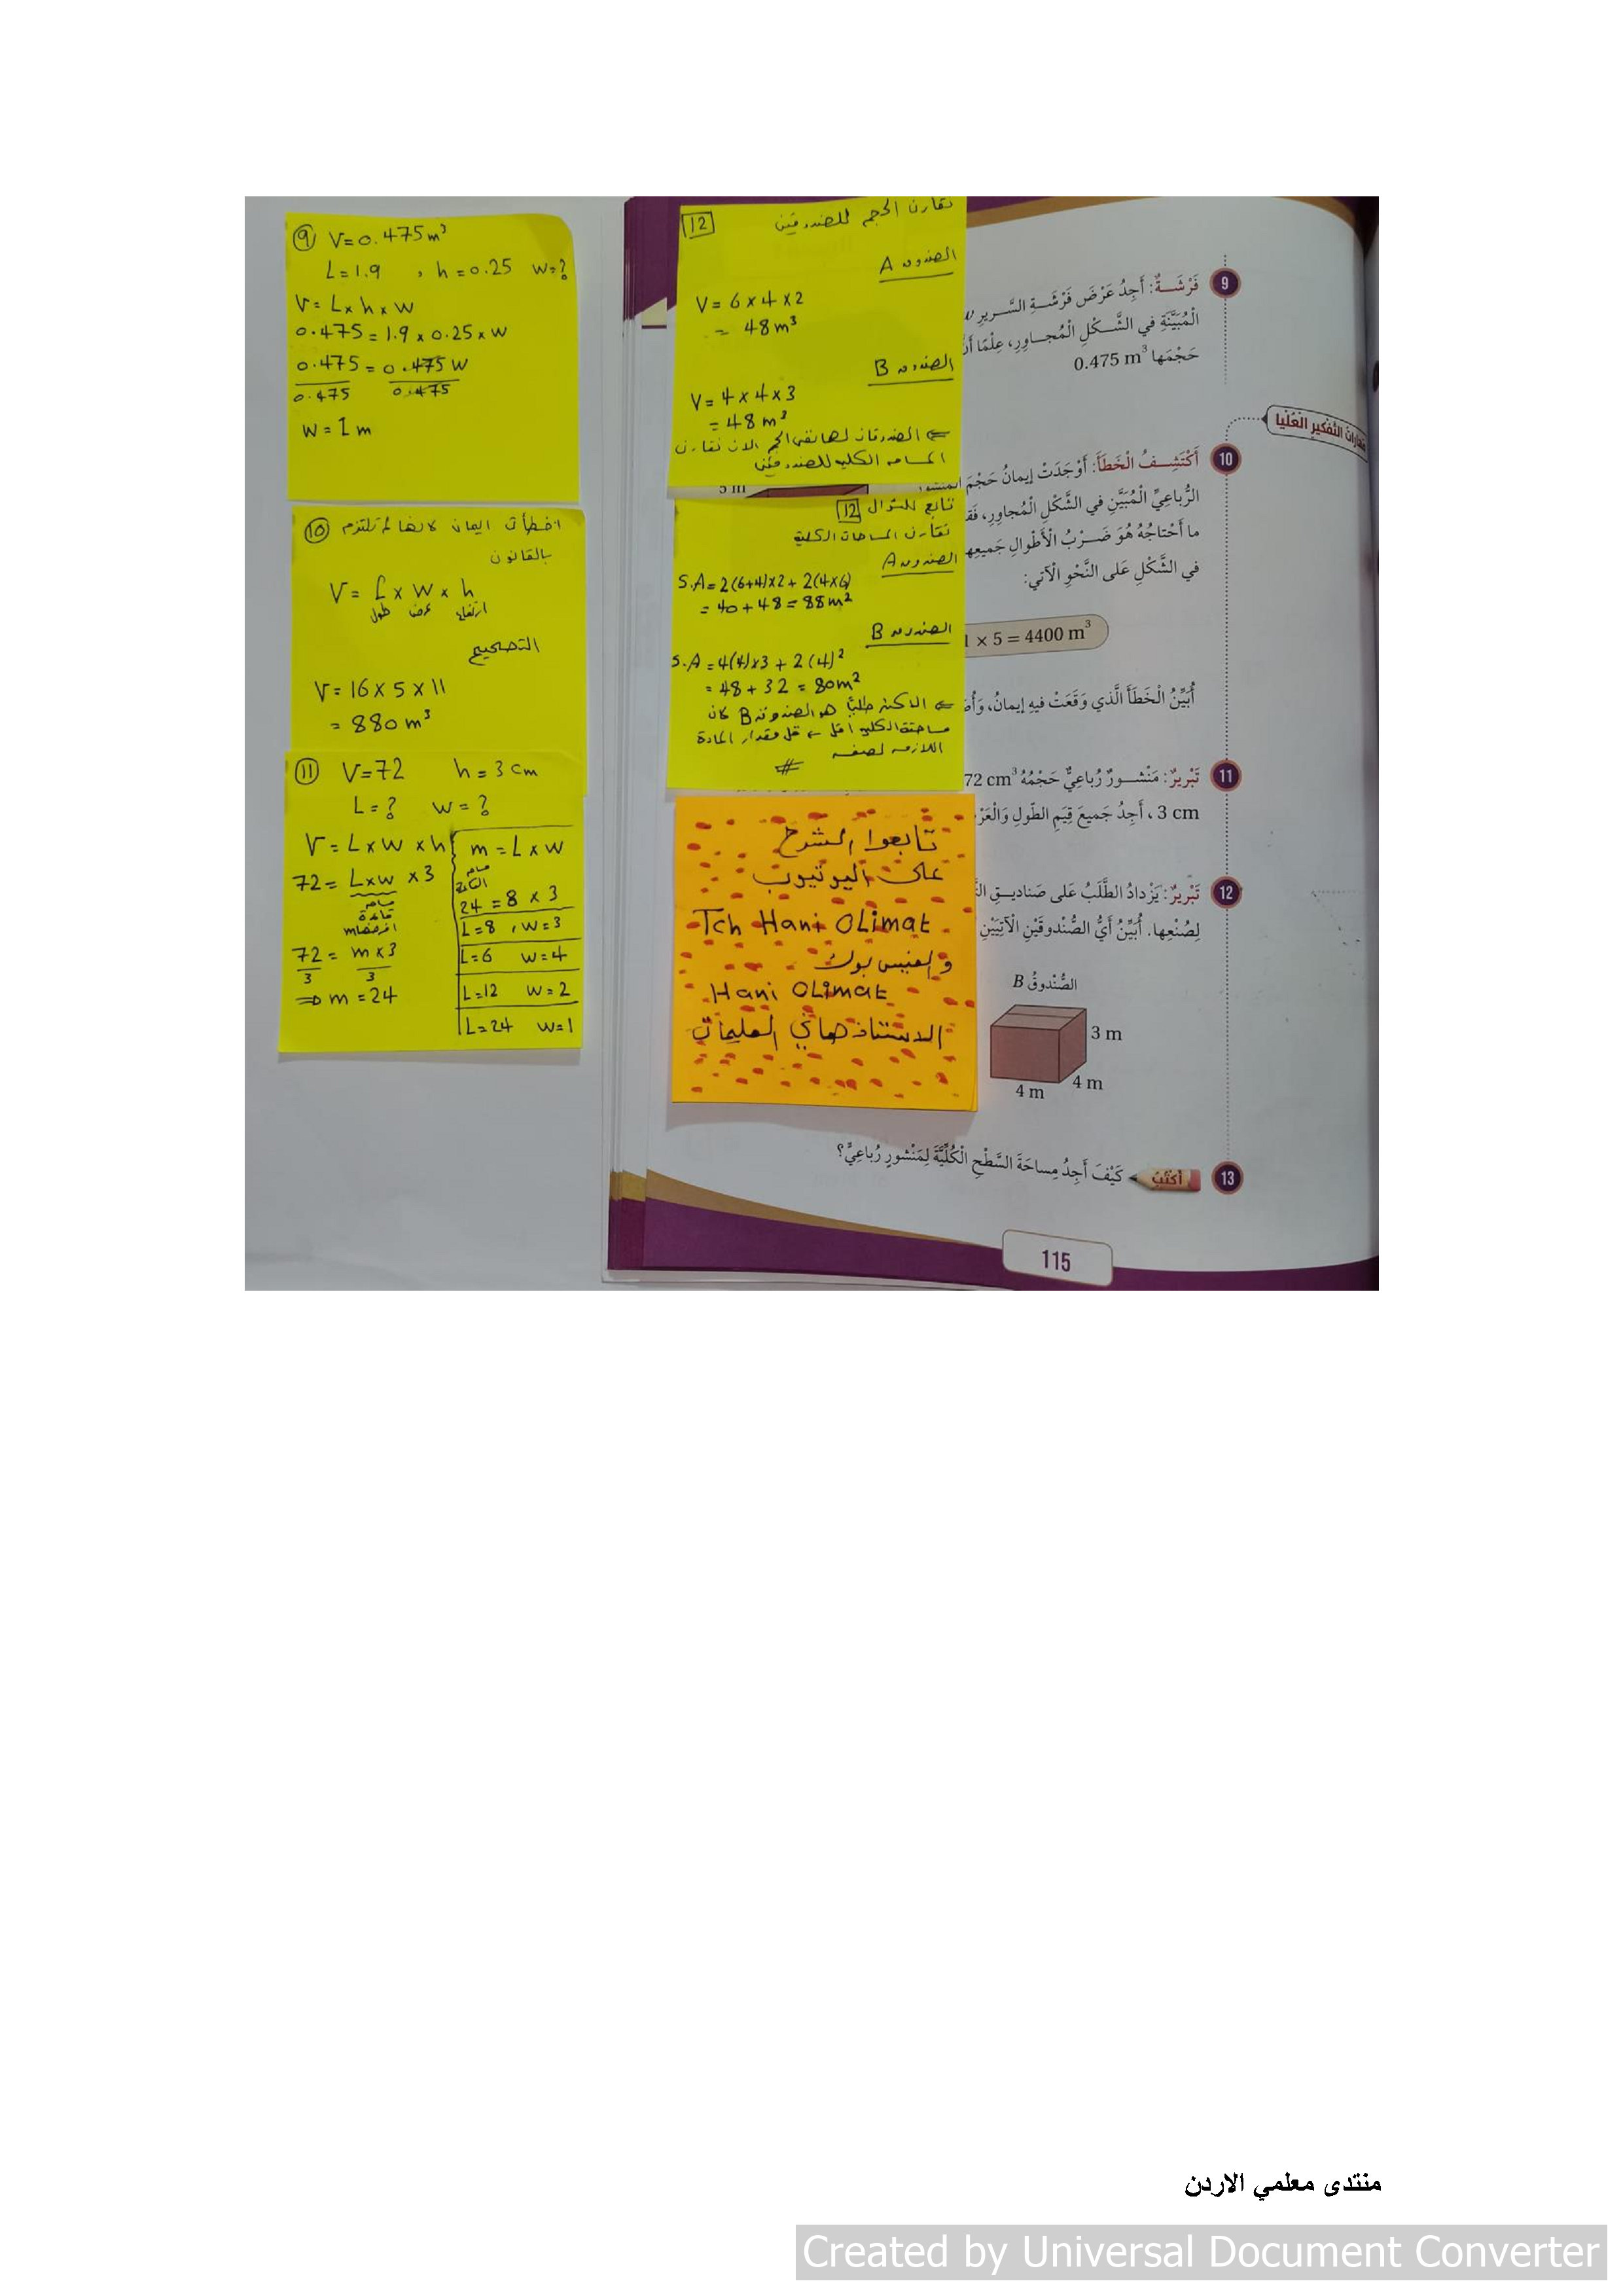 9 V=0.475 m³
L=1.9 , h=0.25 w=?
V=L×h×w
0.475=1.9×0.25×w
0.475 = 0.475 w
0.475 0.475
w=1 m
10 اخطأت ايمان لانها لم تلتزم
بالقانون
V= L × w × h
طول عرض ارتفاع
التصحيح
V= 16 × 5 × 11
= 880 m³
11 V=72 h=3 cm
L=? w=?
V=L×w×h
72= L×w ×3
قاعدة
افرضها m
72 = m×3
3 3
⇒ m=24
m=L×w
24=8×3
L=8 , w=3
L=6 w=4
L=12 w=2
L=24 w=1
12 نقارن الحجم للصندوقين
الصندوق A
V= 6×4×2
= 48 m³
الصندوق B
V= 4×4×3
= 48 m³
⇐ الصندوقان لهما نفس الحجم الان نقارن
المساحه الكليه للصندوقين
5 m
تابع للسؤال 12
نقارن المساحات الكلية
الصندوق A
S.A=2(6+4)×2+2(4×6)
= 40+48=88 m²
الصندوق B
S.A=4(4)×3+2(4)²
= 48+32=80 m²
⇐ الاكثر طلبًا هو الصندوق B لان
مساحته الكليه اقل ← قل مقدار المادة
اللازمه لصنعه
#
تابعوا الشرح
على اليوتيوب
Tch Hani OLimat
والفيس بوك
Hani OLimat
الاستاذ هاني العليمات
9 فَرْشَةٌ: أَجِدُ عَرْضَ فَرْشَةِ السَّريرِ w
الْمُبَيَّنَةِ في الشَّكْلِ الْمُجاوِرِ، عِلْمًا أَنَّ
حَجْمَها 0.475 m³
مهارات التفكير العليا
10 أَكْتَشِفُ الْخَطَأَ: أَوْجَدَتْ إيمانُ حَجْمَ الْمَنْشورِ
الرُّباعِيِّ الْمُبَيَّنِ في الشَّكْلِ الْمُجاوِرِ، فَقا
ما أَحْتاجُهُ هُوَ ضَرْبُ الْأَطْوالِ جَميعِها
في الشَّكْلِ عَلى النَّحْوِ الْآتي:
1 × 5 = 4400 m³
أُبَيِّنُ الْخَطَأَ الَّذي وَقَعَتْ فيهِ إيمانُ، وَأُصَ
11 تَبْريرٌ: مَنْشورٌ رُباعِيٌّ حَجْمُهُ 72 cm³
3 cm، أَجِدُ جَميعَ قِيَمِ الطّولِ وَالْعَرْ
12 تَبْريرٌ: يَزْدادُ الطَّلَبُ عَلى صَناديقِ
لِصُنْعِها. أُبَيِّنُ أَيُّ الصُّنْدوقَيْنِ الْآتِيَيْنِ
الصُّنْدوقُ B
3 m
4 m
4 m
13 أَكْتُبُ كَيْفَ أَجِدُ مِساحَةَ السَّطْحِ الْكُلِّيَّةَ لِمَنْشورٍ رُباعِيٍّ؟
115
منتدى معلمي الاردن
Created by Universal Document Converter